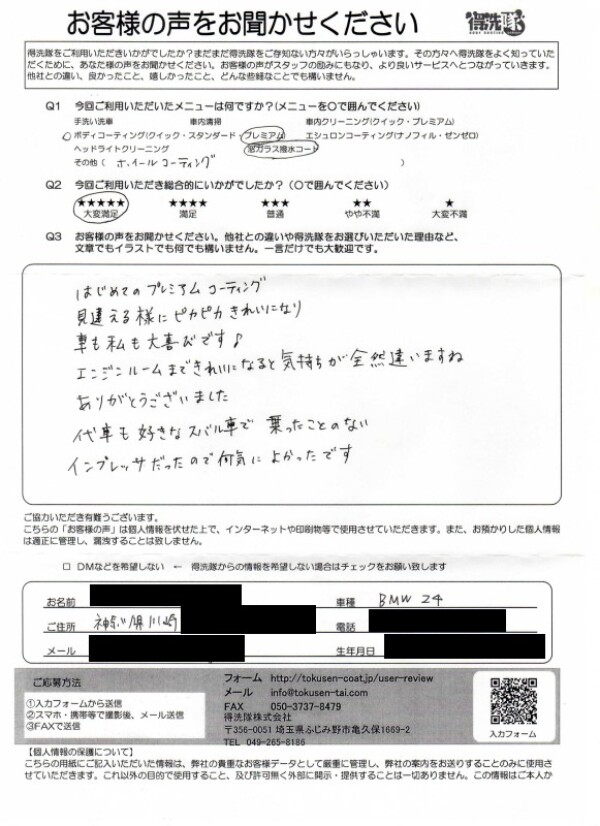 お客様の声をお聞かせください
得洗隊
得洗隊をご利用いただきいかがでしたか?まだまだ得洗隊をご存知ない方々がいらっしゃいます。その方々へ得洗隊をよく知っていた
だくために、あなた様の声をお聞かせください。お客様の声がスタッフの励みにもなり、より良いサービスへとつながっていきます。
他社との違い、良かったこと、嬉しかったこと、どんな些細なことでも構いません。
Q1 今回ご利用いただいたメニューは何ですか?(メニューを〇で囲んでください)
手洗い洗車 車内清掃 車内クリーニング(クイック・プレミアム)
ボディコーティング(クイック・スタンダード・プレミアム) エシュロンコーティング(ナノフィル・ゼンゼロ)
ヘッドライトクリーニング 窓ガラス撥水コート
その他( ホイールコーティング )
Q2 今回ご利用いただき総合的にいかがでしたか?(〇で囲んでください)
★★★★★ ★★★★ ★★★ ★★ ★
大変満足 満足 普通 やや不満 大変不満
Q3 お客様の声をお聞かせください。他社との違いや得洗隊をお選びいただいた理由など、
文章でもイラストでも何でも構いません。一言だけでも大歓迎です。
はじめてのプレミアムコーティング
見違える様にピカピカきれいになり
車も私も大喜びです♪
エンジンルームまできれいになると気持ちが全然違いますね
ありがとうございました
代車も好きなスバル車で 乗ったことのない
インプレッサだったので何気によかったです
ご協力いただき有難うございます。
こちらの「お客様の声」は個人情報を伏せた上で、インターネットや印刷物等で使用させていただきます。また、お預かりした個人情報
は適正に管理し、漏洩することは致しません。
□ DMなどを希望しない ← 得洗隊からの情報を希望しない場合はチェックをお願い致します
お名前 車種 BMW Z4
ご住所 神奈川県川崎 電話
メール 生年月日
ご応募方法
①入力フォームから送信
②スマホ・携帯等で撮影後、メール送信
③FAXで送信
フォーム http://tokusen-coat.jp/user-review
メール info@tokusen-tai.com
FAX 050-3737-8479
得洗隊株式会社
〒356-0051 埼玉県ふじみ野市亀久保1669-2
TEL 049-265-8186
入力フォーム
【個人情報の保護について】
こちらの用紙にご記入いただいた情報は、弊社の貴重なお客様データとして厳重に管理し、弊社の案内をお送りすることのみに使用さ
せていただきます。これ以外の目的で使用すること、及び許可無く外部に開示・提供することは一切ありません。この情報はご本人か